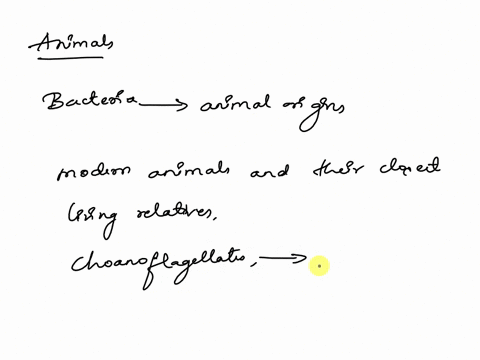 Animals
Bacteria → animal origins
modern animals and their closest
living relatives,
choanoflagellates, →